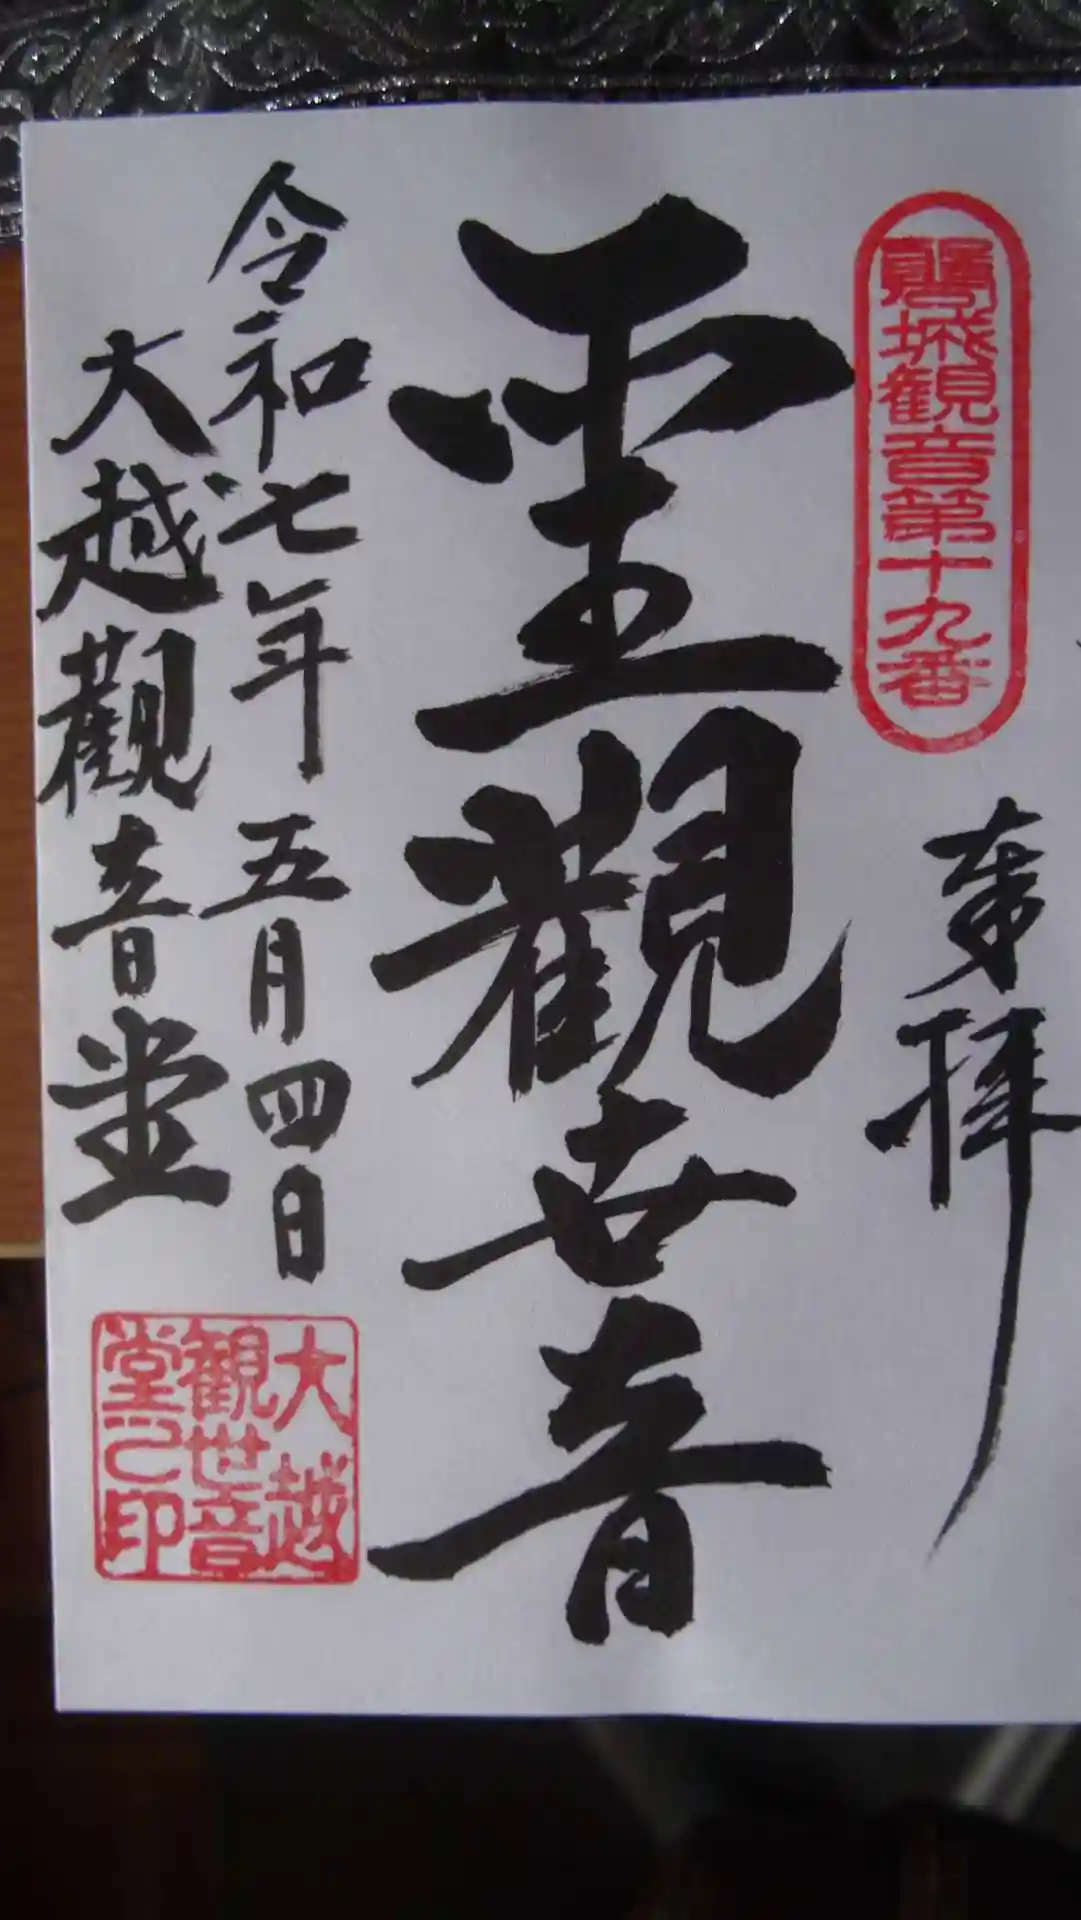 磐城観音第十九番
奉拝
聖觀世音
令和七年五月四日
大越觀音堂
大越
観世音
堂之印